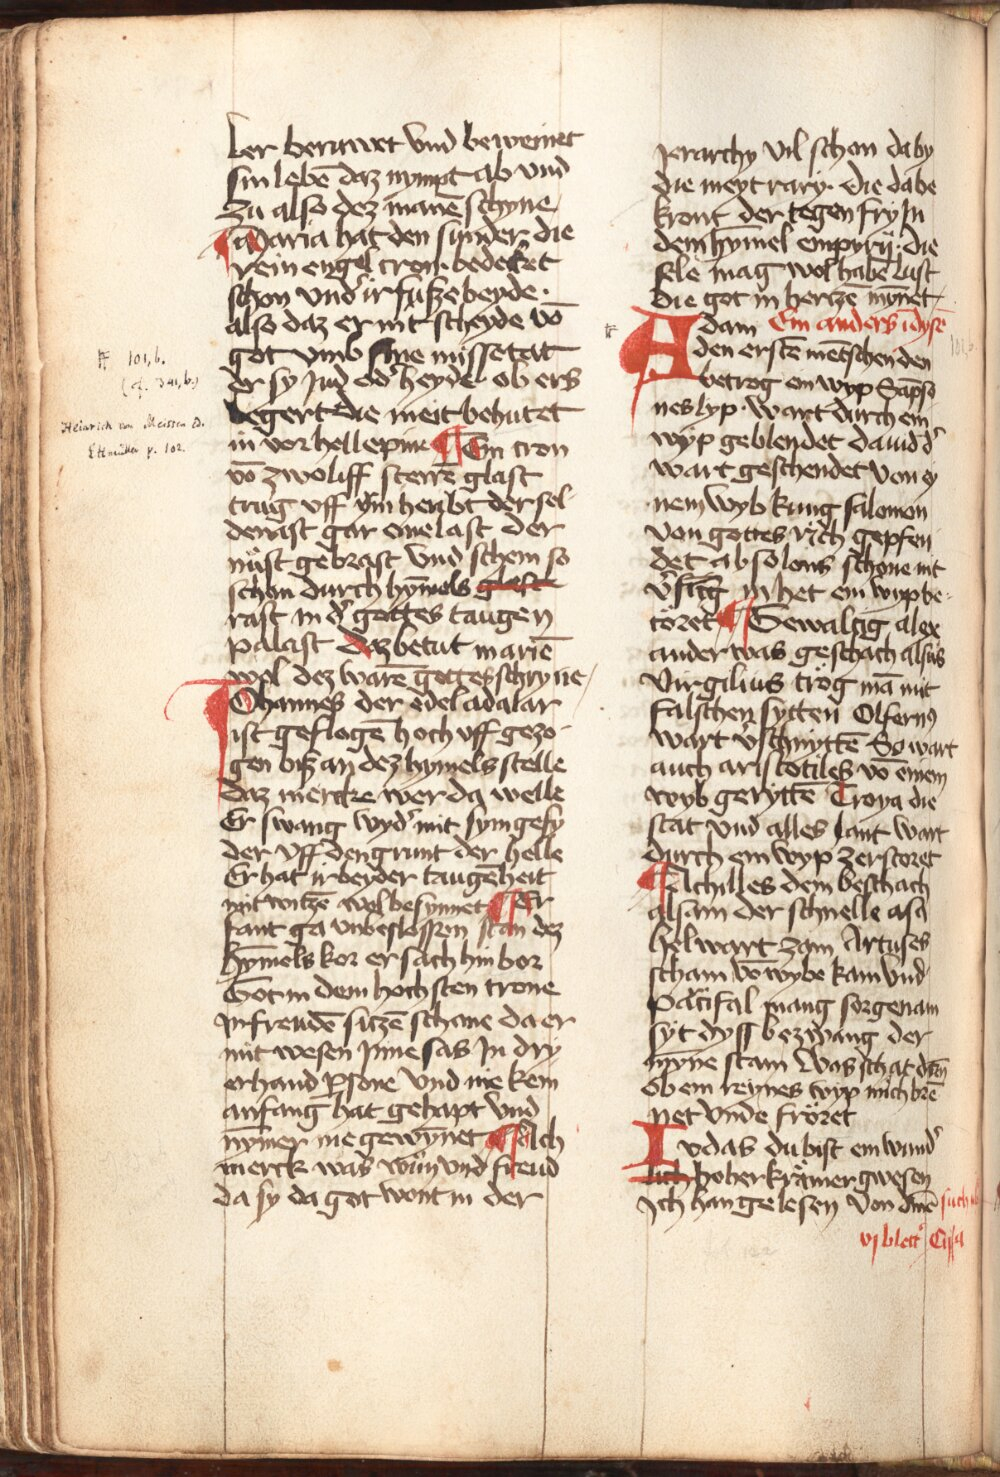 ber beruwet vnd beweinet
sin lebē daz nympt ab vnd
zu also dez manē schyne
Maria hat den sunder die
rein engel cron bedecket
schon vnd' ir fusze beyde ·
also daz er nit scheyde vō
got vmb sine missetat
er sy Jud od' heyde ob ers
begert die meit behutet
in vor helle pine ¶ Ein cron
vō zwoliff sterrē glast
trug vff irm heubt der sel
denast gar eine last der
nust gebrast vnd schein so
schon durch hȳmels glast
rast in d' gottes taugen
palast daz betut mariē
wol dez warē gottes schryne
Johannes der edel adalar
ist geflogē hoch vff gezo
gen bisz an dez hymels stelle
daz mercke wer da welle
Er swang wyd' mit sym gefy
der vff den grunt der helle
Er hat ir beyder taugēheit
mit witzē wol besynnet ¶ Er
fant ga vnbeslossen stan dez
hȳmels kor er sach hin bor
Got in dem hochsten trone
In freudē sitzē schone da er
mit wesen Inne sas In dry
erhand psone vnd nie kein
anfang hat gehapt vnd
nȳmer me gewȳnet ¶ Solch
merck was wun vnd freud
da sy da got wont in der
ꝶ 101,b.
(cf. 341,b.)
Heinrich von Meissen ed.
Ettmüller p. 102.
Jerarchy vil schon da by
die meyt rary · die da be
kront der tegen fry In
dem hȳmel empyrij · die
sele mag wol habē lust
die got in hertzē mȳnet
Adam Ein anders in dysē
den erstē mētschen den
betrog ein wyp Sāpso
nes lyp · wart durch ein
wyp geblendet dauid d'
wart geschendet von ey
nem wyb kung salomon
von gottes rich gepfen
det absolons schone nit
v'fing in het ein wyp be
töret ¶ Gewaltig alex
ander was geschach alsus
Virgilius trög mā mit
falschen sytten Olfern9
wart v'schnyttē So wart
auch aristotiles vō einem
wyb geryttē Troya die
stat vnd alles lant wart
durch ein wyp zerstoret
¶ Achilles dem beschach
alsam der schnelle asa
hel wart zam Artuses
scham vō wybe kam vnd
Parcifal mang sorge nam
syt dysz bezwang der
mȳne stam Was schat dān
ob ein reynes wyp mich brē
net vnde fröret
Judas du bist ein wund'
lich hoher krämer gwesen
Ich han gelesen von dinē such ab
vj blett' Cissa